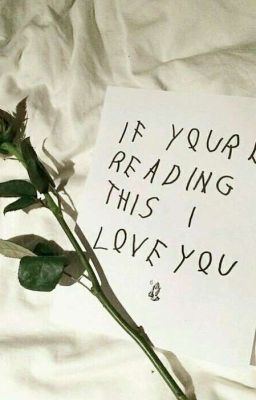 IF YOUR
READING
THIS I
LOVE YOU